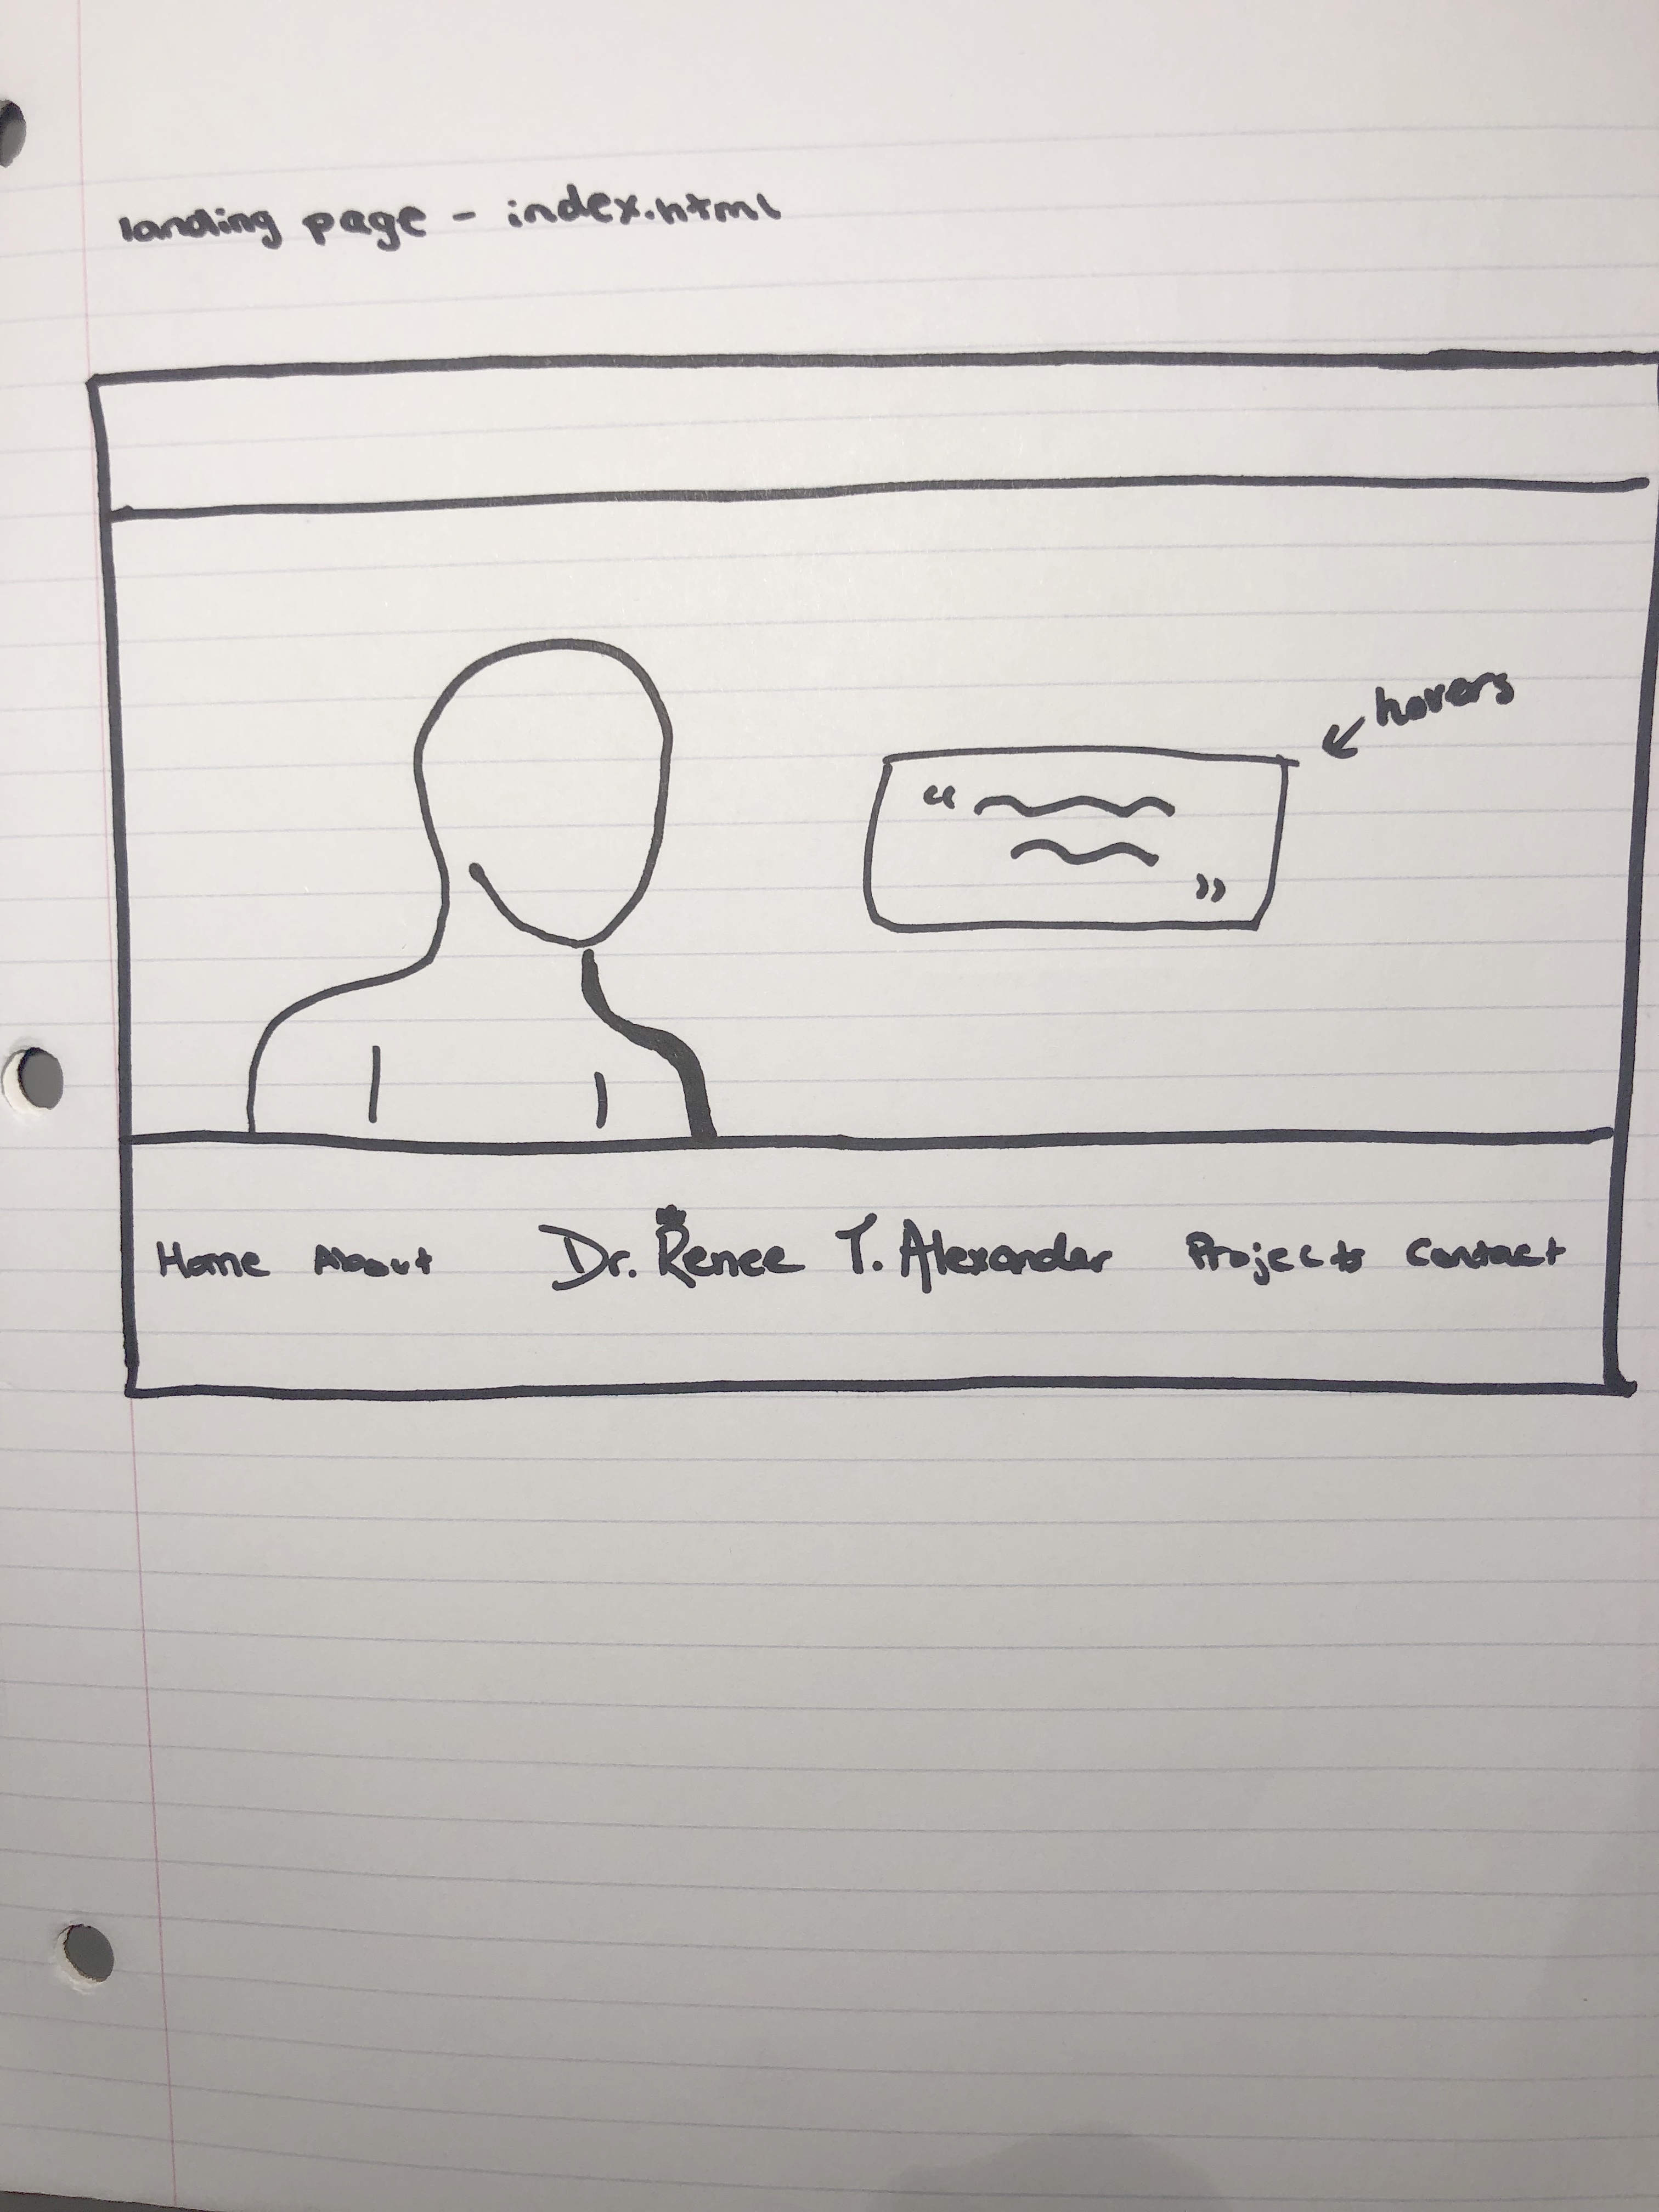 landing page - index.html
hovers
“
”
Home About Dr. Renee T. Alexander Projects Contact